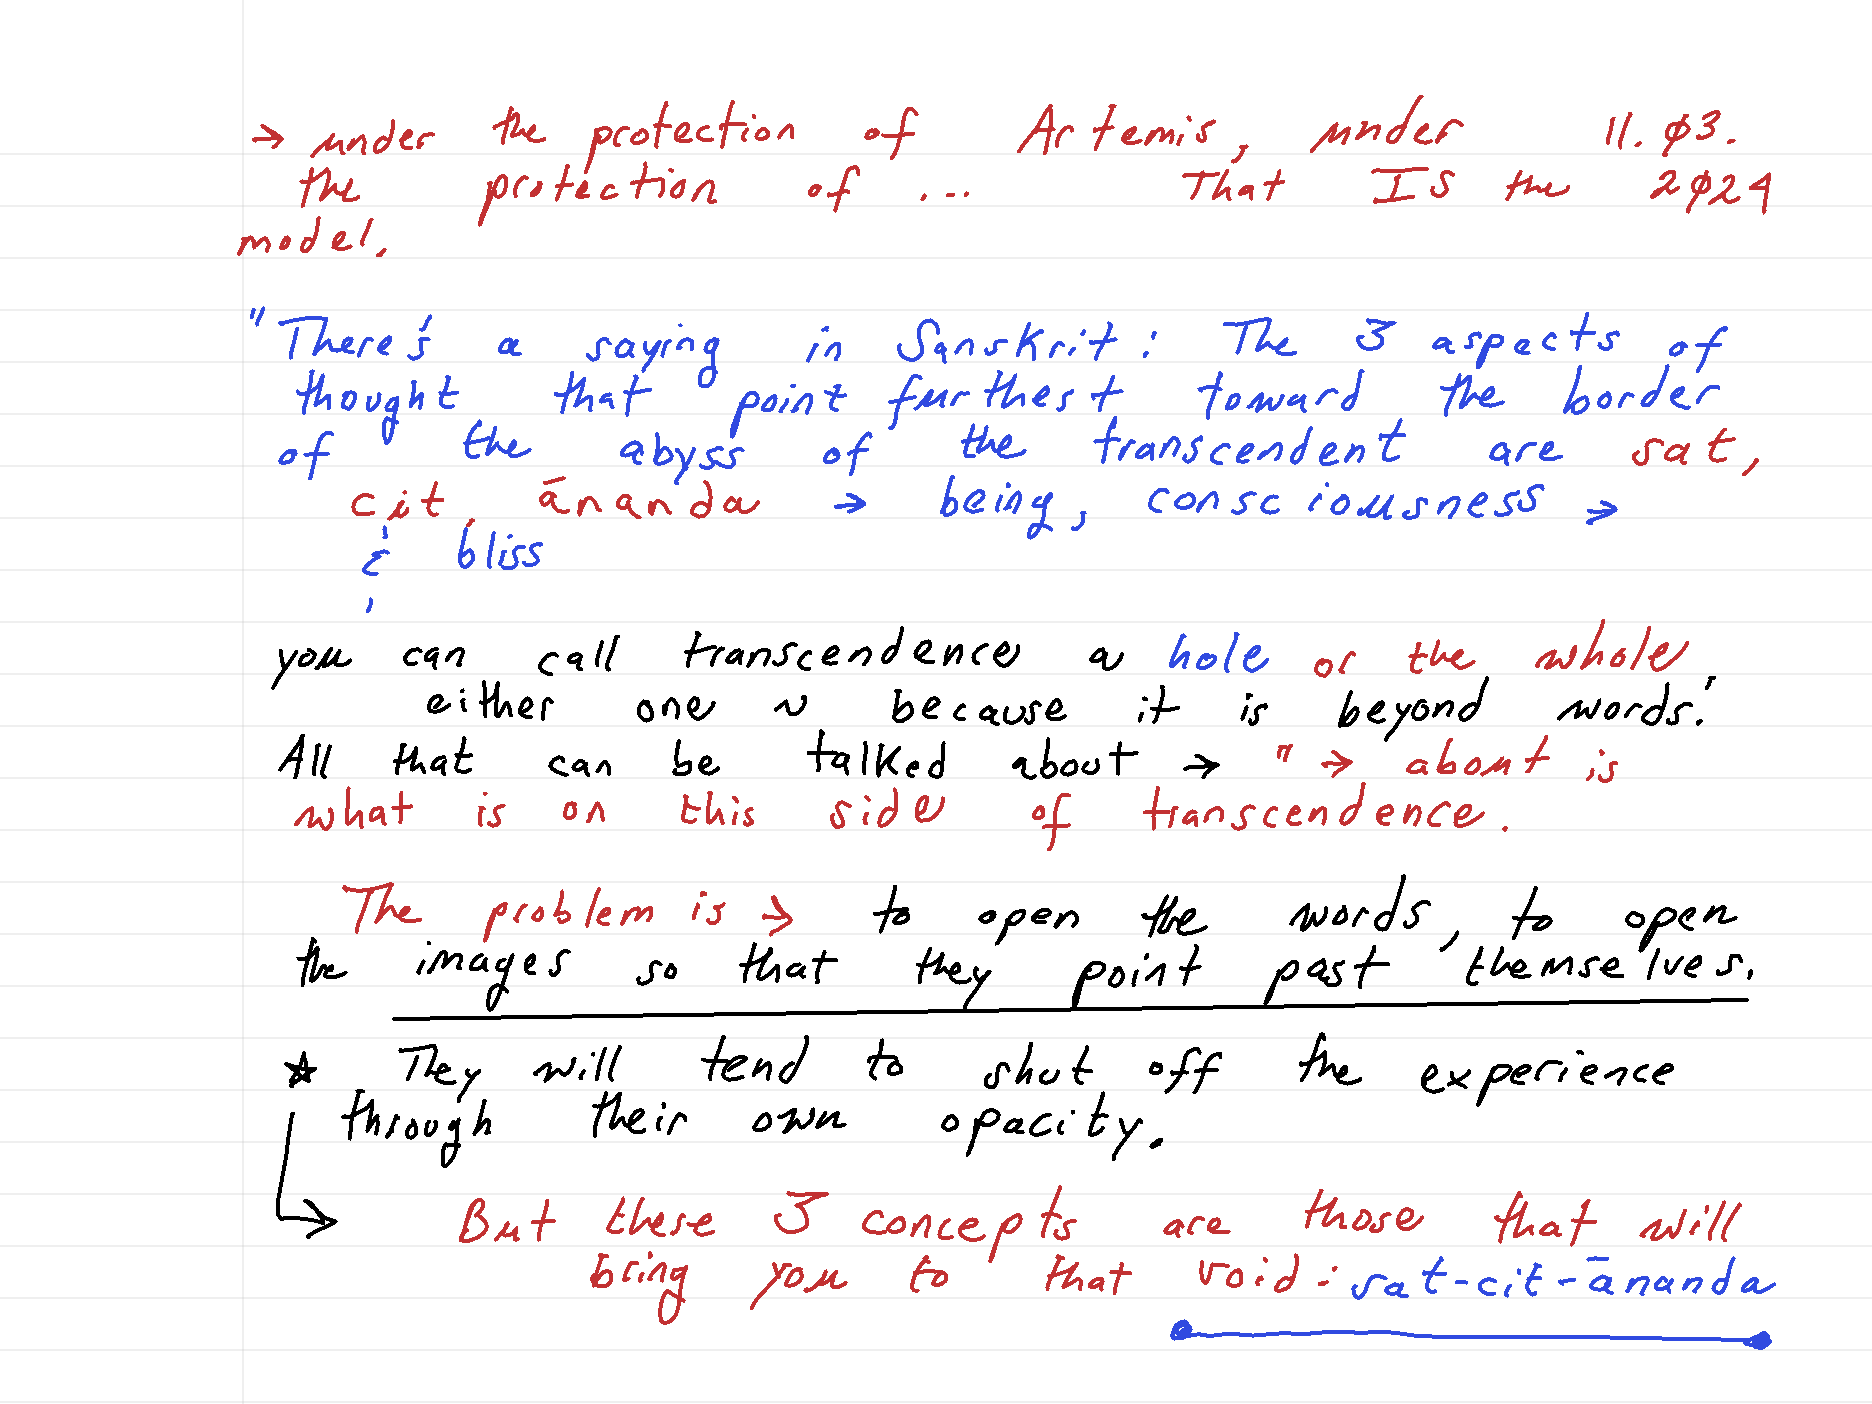 → under the protection of Artemis, under 11.φ3.
the protection of ... That IS the 2φ24
model.
"There's a saying in Sanskrit: The 3 aspects of
thought that point furthest toward the border
of the abyss of the transcendent are sat,
cit, ānanda → being, consciousness →
& bliss
you can call transcendence a hole or the whole
either one ~ because it is beyond words.'
All that can be talked about → " → about is
what is on this side of transcendence.
The problem is → to open the words, to open
the images so that they point past themselves.
☆ They will tend to shut off the experience
through their own opacity.
↳ But these 3 concepts are those that will
bring you to that void: sat-cit-ānanda